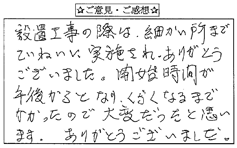 ☆ご意見・ご感想☆
設置工事の際は、細かい所まで
ていねいに実施され、ありがとう
ございました。開始時間が
午後からとなり、くらくなるまで
かかったので大変だったと思い
ます。ありがとうございました。